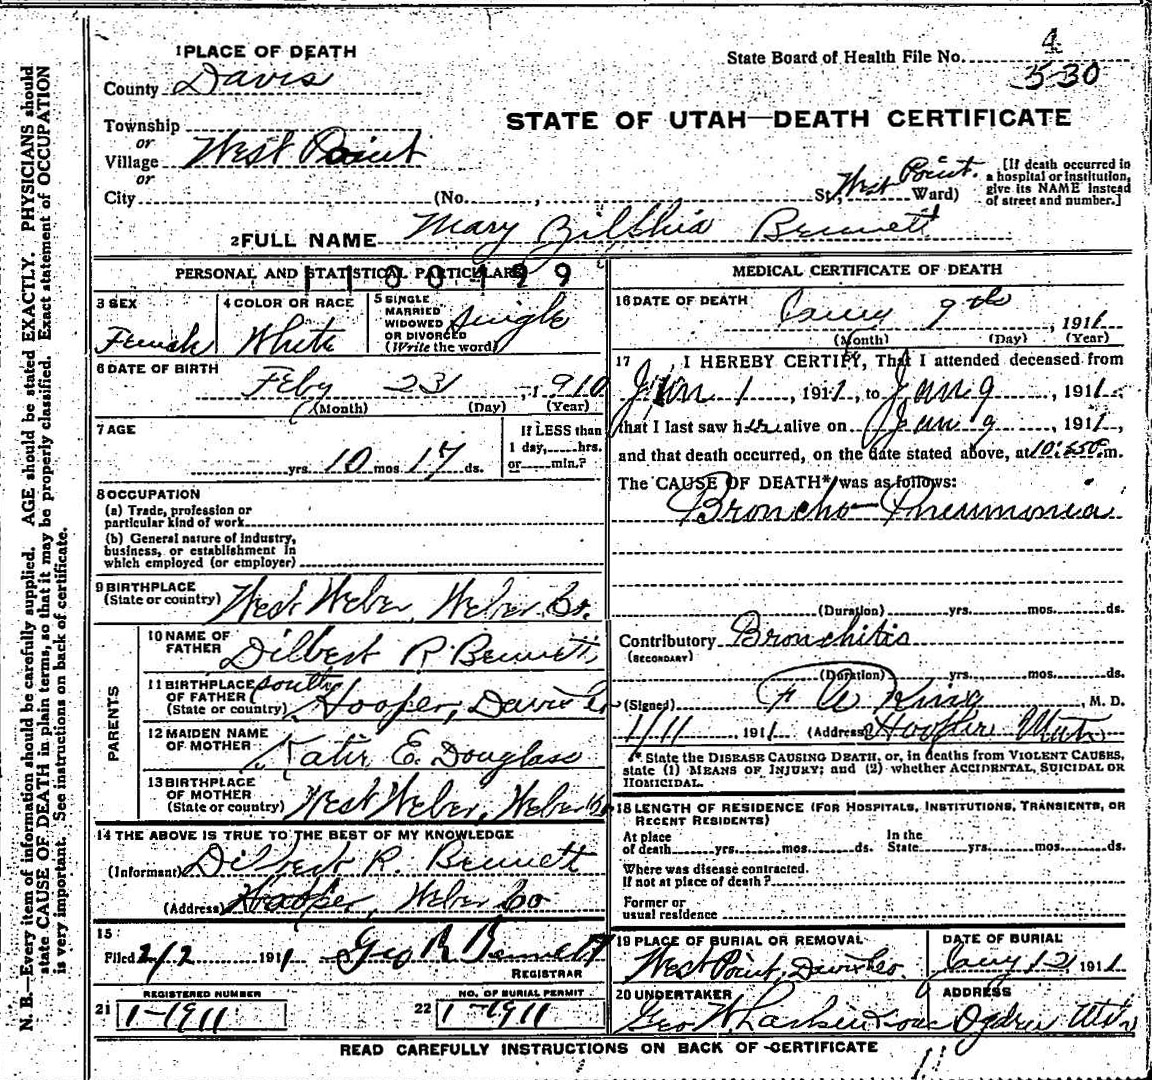 1 PLACE OF DEATH
County Davis
Township
or
Village West Point
or
City (No. , St, West Point. Ward)
State Board of Health File No. 4
530
STATE OF UTAH—DEATH CERTIFICATE
[If death occurred in
a hospital or institution,
give its NAME instead
of street and number.]
2 FULL NAME Mary Zilphia Bennett
PERSONAL AND STATISTICAL PARTICULARS
1100499
3 SEX
Female
4 COLOR OR RACE
White
5 SINGLE
MARRIED
WIDOWED
OR DIVORCED
(Write the word)
Single
6 DATE OF BIRTH
Feby 23, 1910
(Month) (Day) (Year)
7 AGE
yrs. 10 mos. 17 ds.
If LESS than
1 day, hrs.
or min.?
8 OCCUPATION
(a) Trade, profession or
particular kind of work
(b) General nature of industry,
business, or establishment in
which employed (or employer)
9 BIRTHPLACE
(State or country) West Weber, Weber Co.
PARENTS
10 NAME OF
FATHER Dilbert R. Bennett
11 BIRTHPLACE
OF FATHER
(State or country) South Hooper, Davis Co
12 MAIDEN NAME
OF MOTHER Katie E. Douglass
13 BIRTHPLACE
OF MOTHER
(State or country) West Weber, Weber Co
14 THE ABOVE IS TRUE TO THE BEST OF MY KNOWLEDGE
(Informant) Dilbert R. Bennett
(Address) Hooper, Weber Co
15
Filed 2/2 1911 Geo R Bennett
REGISTRAR
REGISTERED NUMBER
21 1-1911
NO. OF BURIAL PERMIT
22 1-1911
MEDICAL CERTIFICATE OF DEATH
16 DATE OF DEATH
9th, 1911
(Month) (Day) (Year)
17 I HEREBY CERTIFY, That I attended deceased from
Jan 1, 1911, to Jan 9, 1911,
that I last saw her alive on Jan 9, 1911,
and that death occurred, on the date stated above, at m.
The CAUSE OF DEATH* was as follows:
Broncho-Pneumonia
(Duration) yrs. mos. ds.
Contributory Bronchitis
(SECONDARY)
(Duration) yrs. mos. ds.
(Signed) F A King, M. D.
1/11, 1911 (Address) Hooper Utah
* State the DISEASE CAUSING DEATH, or, in deaths from VIOLENT CAUSES,
state (1) MEANS OF INJURY; and (2) whether ACCIDENTAL, SUICIDAL OR
HOMICIDAL.
18 LENGTH OF RESIDENCE (FOR HOSPITALS, INSTITUTIONS, TRANSIENTS, OR
RECENT RESIDENTS)
At place
of death yrs. mos. ds.
In the
State yrs. mos. ds.
Where was disease contracted.
If not at place of death?
Former or
usual residence
19 PLACE OF BURIAL OR REMOVAL
West Point, Davis Co.
DATE OF BURIAL
12, 1911
20 UNDERTAKER
Geo W Larkin
ADDRESS
Ogden Utah
READ CAREFULLY INSTRUCTIONS ON BACK OF CERTIFICATE
N. B.—Every item of information should be carefully supplied. AGE should be stated EXACTLY. PHYSICIANS should
state CAUSE OF DEATH in plain terms, so that it may be properly classified. Exact statement of OCCUPATION
is very important. See instructions on back of certificate.